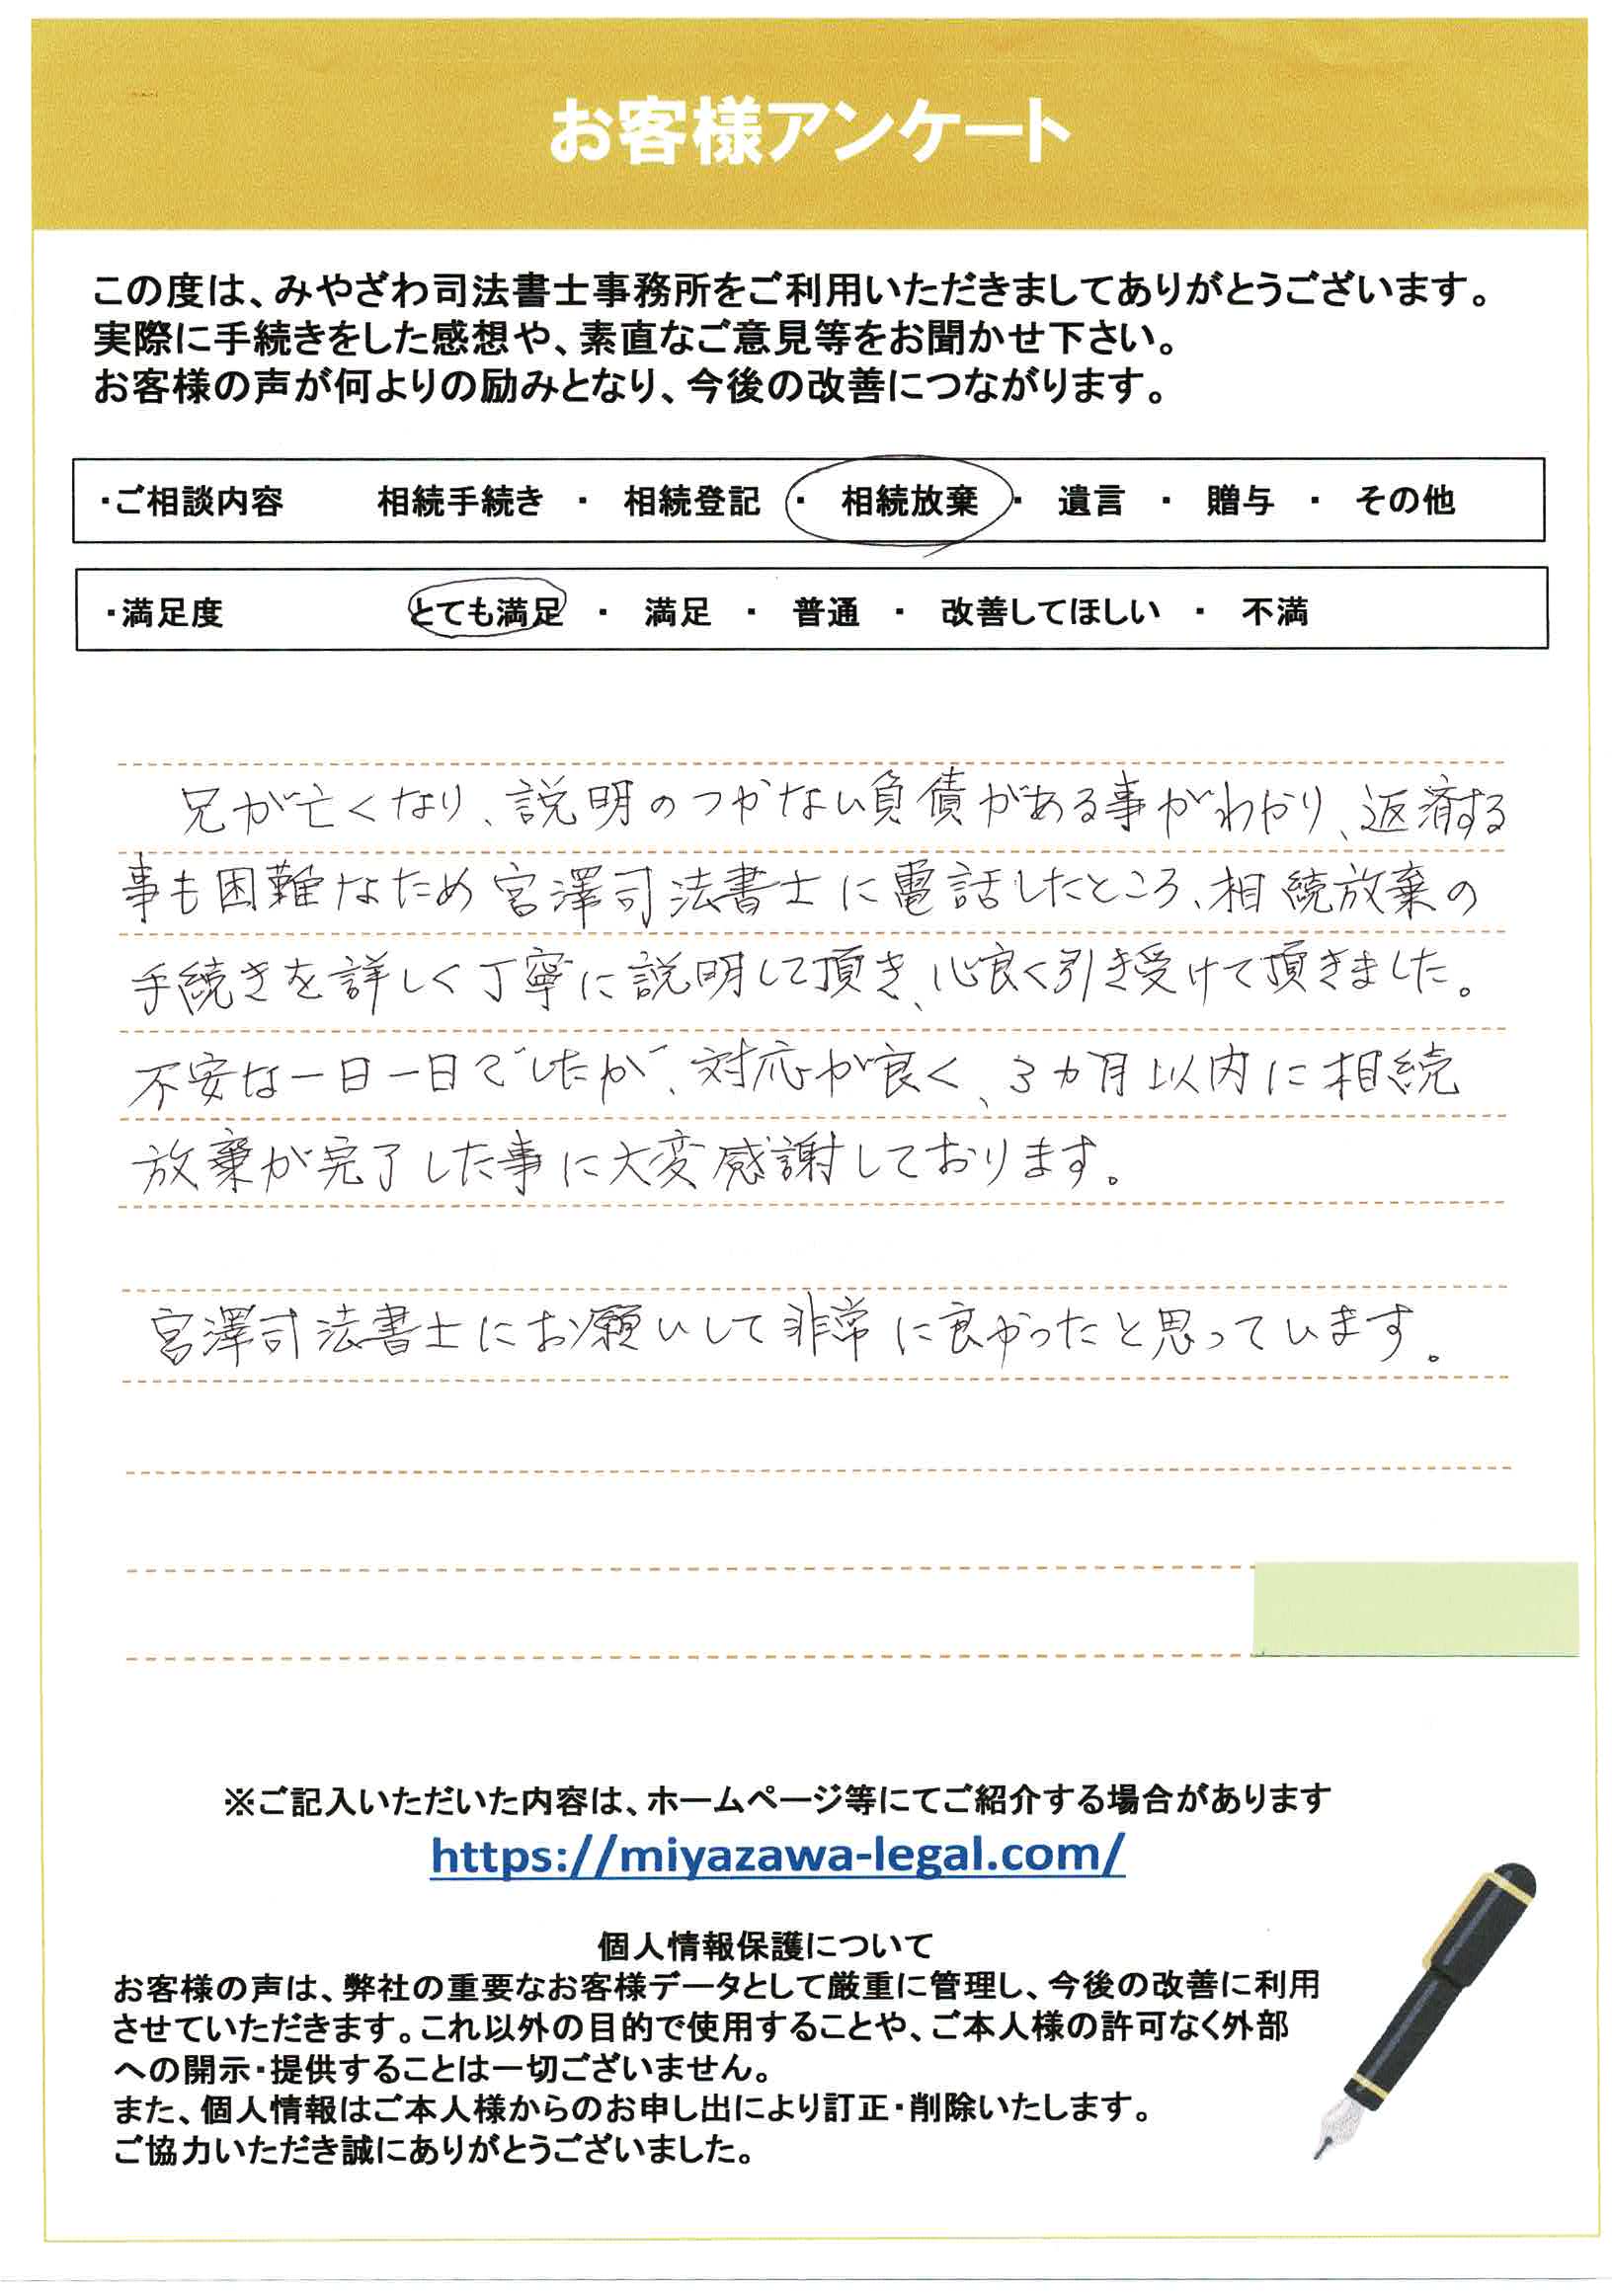 お客様アンケート
この度は、みやざわ司法書士事務所をご利用いただきましてありがとうございます。
実際に手続きをした感想や、素直なご意見等をお聞かせ下さい。
お客様の声が何よりの励みとなり、今後の改善につながります。
・ご相談内容 相続手続き ・ 相続登記 ・ 相続放棄 ・ 遺言 ・ 贈与 ・ その他
・満足度 とても満足 ・ 満足 ・ 普通 ・ 改善してほしい ・ 不満
兄が亡くなり、説明のつかない負債がある事がわかり、返済する
事も困難なため宮澤司法書士に電話したところ、相続放棄の
手続きを詳しく丁寧に説明して頂き、心良く引き受けて頂きました。
不安な一日一日でしたが、対応が良く、3カ月以内に相続
放棄が完了した事に大変感謝しております。
宮澤司法書士にお願いして非常に良かったと思っています。
※ご記入いただいた内容は、ホームページ等にてご紹介する場合があります
https://miyazawa-legal.com/
個人情報保護について
お客様の声は、弊社の重要なお客様データとして厳重に管理し、今後の改善に利用
させていただきます。これ以外の目的で使用することや、ご本人様の許可なく外部
への開示・提供することは一切ございません。
また、個人情報はご本人様からのお申し出により訂正・削除いたします。
ご協力いただき誠にありがとうございました。